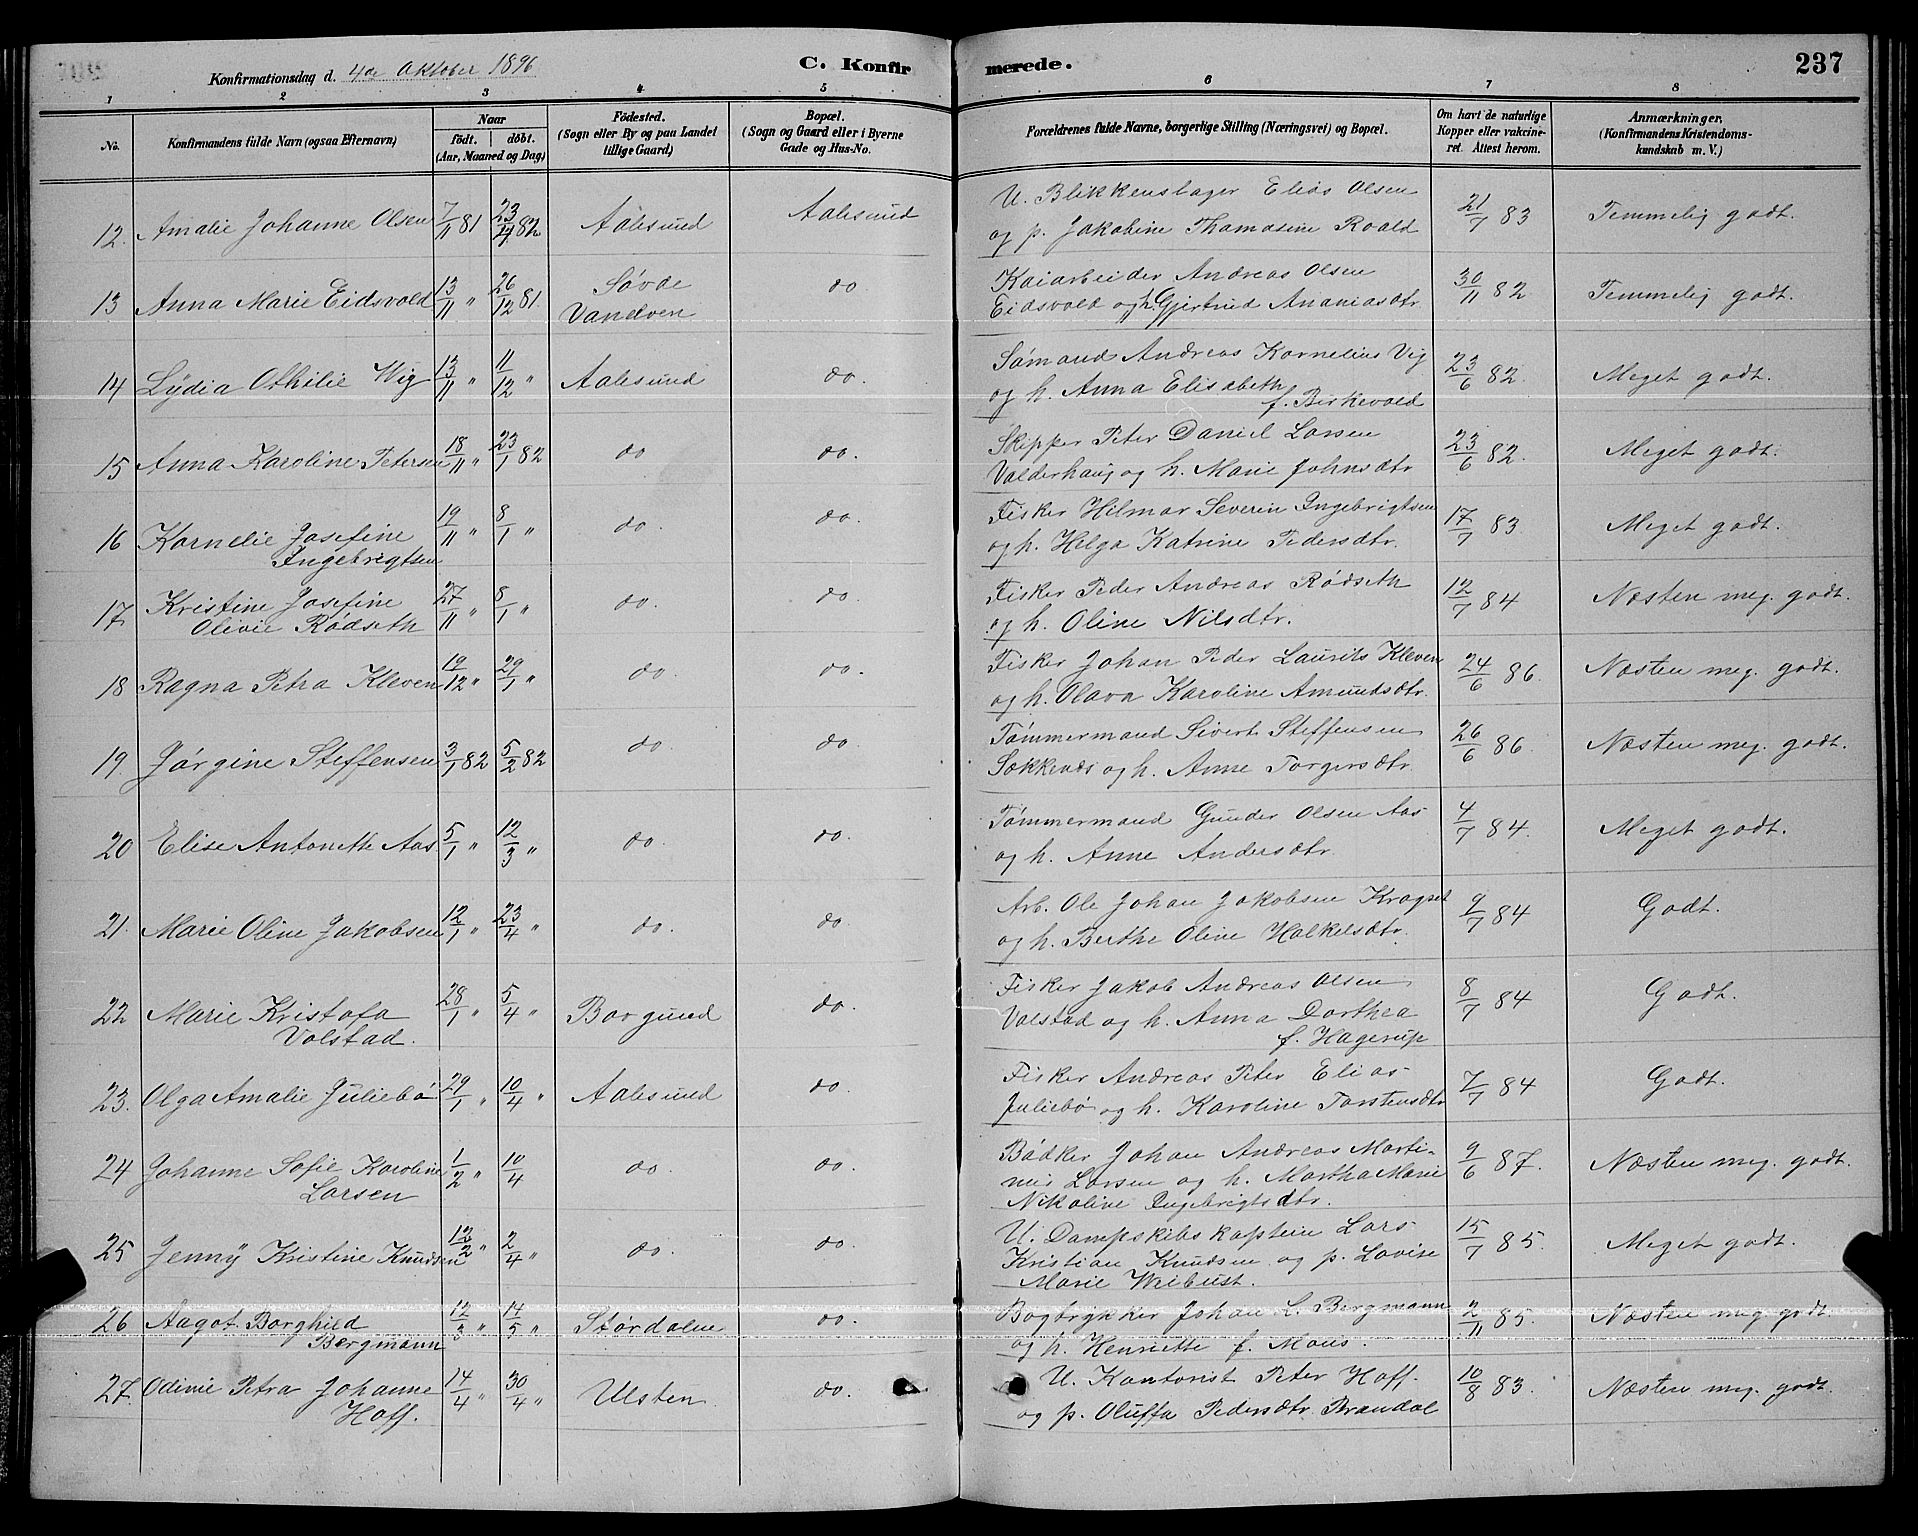 Konfirmationsdag d. 4de Oktober 1896
C. Konfirmerede.
237
1 2 3 4 5 6 7 8
No. Konfirmandens fulde Navn (ogsaa Efternavn) Naar født. døbt. (Aar, Maaned og Dag) Födested. (Sogn eller By og paa Landet tillige Gaard) Bopæl. (Sogn og Gaard eller i Byerne Gade og Hus-No. Forældrenes fulde Navne, borgerlige Stilling (Næringsvei) og Bopæl. Om havt de naturlige Kopper eller vakcineret. Attest herom. Anmærkninger. (Konfirmandens Kristendomskundskab m. V.)
12. Amalie Johanne Olsen 7/11 81 23/4 82 Aalesund Aalesund U. Blikkenslager Elias Olsen 21/7 83 Temmelig godt.
og p. Jakobine Thomasine Roald
13 Anna Marie Eidsvold 13/11 " 26/12 81 Søvde do Kaiarbeider Andreas Olsen 30/11 82 Temmelig godt.
Vandven Eidsvold og h. Gjertrud Ananiasdtr.
14 Lydia Othilie Wig 13/11 " 11/12 " Aalesund do. Sømand Andreas Kornelius Vig 23/6 82. Meget godt.
og h. Anna Elisabeth
f. Birkevold
15 Anna Karoline Petersen 18/11 " 23/1 82 do do. Skipper Peter Daniel Larsen 23/6 82. Meget godt.
Valderhaug og h. Marie Johnsdtr
16 Kornelie Josefine 19/11 " 8/1 " do. do. Fisker Hilmar Severin Ingebrigtsen 17/7 83 Meget godt.
Ingebrigtsen og h. Helga Katrine Pedersdtr.
17 Kristine Josefine 27/11 " 8/1 " do. do. Fisker Peder Andreas Rødseth 12/7 84 Næsten meg. godt.
Olivie Rødseth og h. Oline Nilsdtr.
18 Ragna Petra Kleven 19/12 " 29/1 " do. do. Fisker Johan Peder Laurits Kleven 24/6 86. Næsten meg. godt.
og h. Olava Karoline Amundsdtr.
19. Jørgine Steffensen 3/1 82 5/2 82 do. do. Tømmermand Sivert Steffensen 26/6 86. Næsten meg. godt.
Søkkenes og h. Anne Torgersdtr.
20 Elise Antonette Aas 5/1 " 12/3 " do. do. Tømmermand Gunder Olsen Aas 4/7 84. Meget godt.
og h. Anne Andersdtr.
21. Marie Oline Jakobsen 12/1 " 23/4 " do. do. Arb. Ole Johan Jakobsen Kragset 9/7 84 Godt.
og h. Berthe Oline Halkelsdtr.
22 Marie Kristofa 28/1 " 5/4 " Borgund do. Fisker Jakob Andreas Olsen 8/7 84 Godt.
Volstad. Valstad og h. Anna Dorthea
f. Hagerup
23. Olga Amalie Juliebø 29/1 " 10/4 " Aalesund do. Fisker Andreas Peter Elias 7/7 84 Godt.
Juliebø og h. Karoline Torstensdtr
24 Johanne Sofie Karoline 1/2 " 10/4 do. do. Bødker Johan Andreas Marti- 9/6 87. Næsten meg. godt.
Larsen nus Larsen og h. Martha Marie
Nikoline Ingebrigtsdtr.
25 Jenny Kristine Knudsen 12/2 " 2/4 " do. do. U. Dampskibskaptein Lars 15/7 85. Meget godt.
Kristian Knudsen og p. Lovise
Marie Weibust.
26 Aagot Borghild 12/3 " 14/5 " Størdalen do. Bogtrykker Johan L. Bergmann 2/11 85. Næsten meg. godt.
Bergmann og h. Henriette f. Mous.
27. Odinie Petra Johanne 14/4 " 30/4 " Ulsten do. U. Kontorist Peter Hoff. 10/8 83. Næsten meg. godt.
Hoff. og p. Oluffa Pedersdtr Brandal